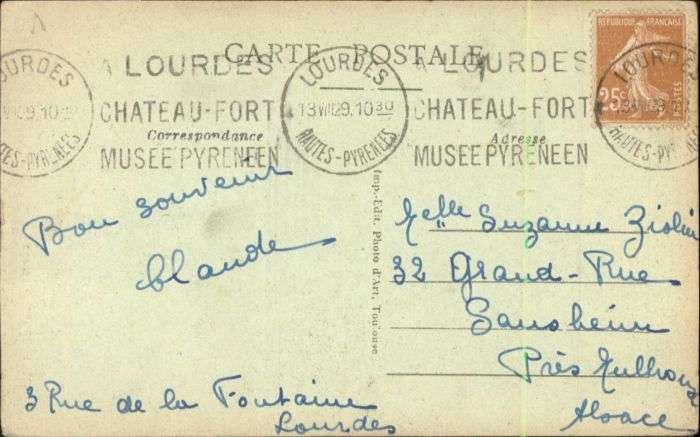 CARTE POSTALE
RÉPUBLIQUE FRANÇAISE
25c
A LOURDES
CHATEAU-FORT
MUSEE PYRENEEN
LOURDES
13 VIII 29. 10 30
HAUTES-PYRENEES
A LOURDES
CHATEAU-FORT
MUSEE PYRENEEN
LOURDES
HAUTES-PYRENEES
Correspondance
Adresse
Bon souvenir
Claude
3 Rue de la Fontaine
Lourdes
Imp.-Edit. Photo d'Art, Toulouse
Melle Suzanne
32 Grand-Rue
Sausheim
Près Mulhouse
Alsace